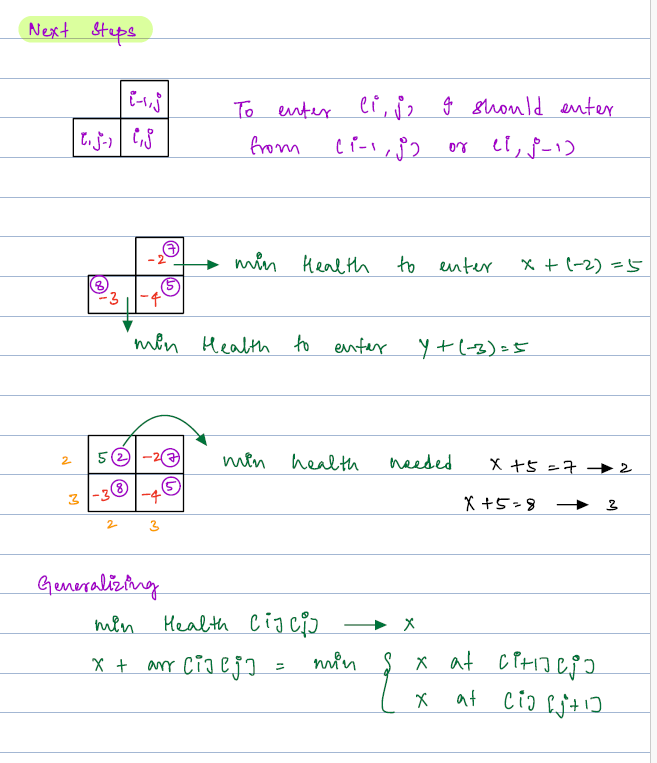 Next Steps
i-1,j
To enter (i,j) I should enter
i,j-1 i,j
from (i-1,j) or (i,j-1)
-2 7
min Health to enter x + (-2) = 5
8 -3 -4 5
min Health to enter y + (-3) = 5
2 5 2 -2 7 min health needed x + 5 = 7 → 2
3 -3 8 -4 5 x + 5 = 8 → 3
2 3
Generalizing
min Health [i][j] → x
x + arr[i][j] = min { x at [i+1][j]
x at [i][j+1]